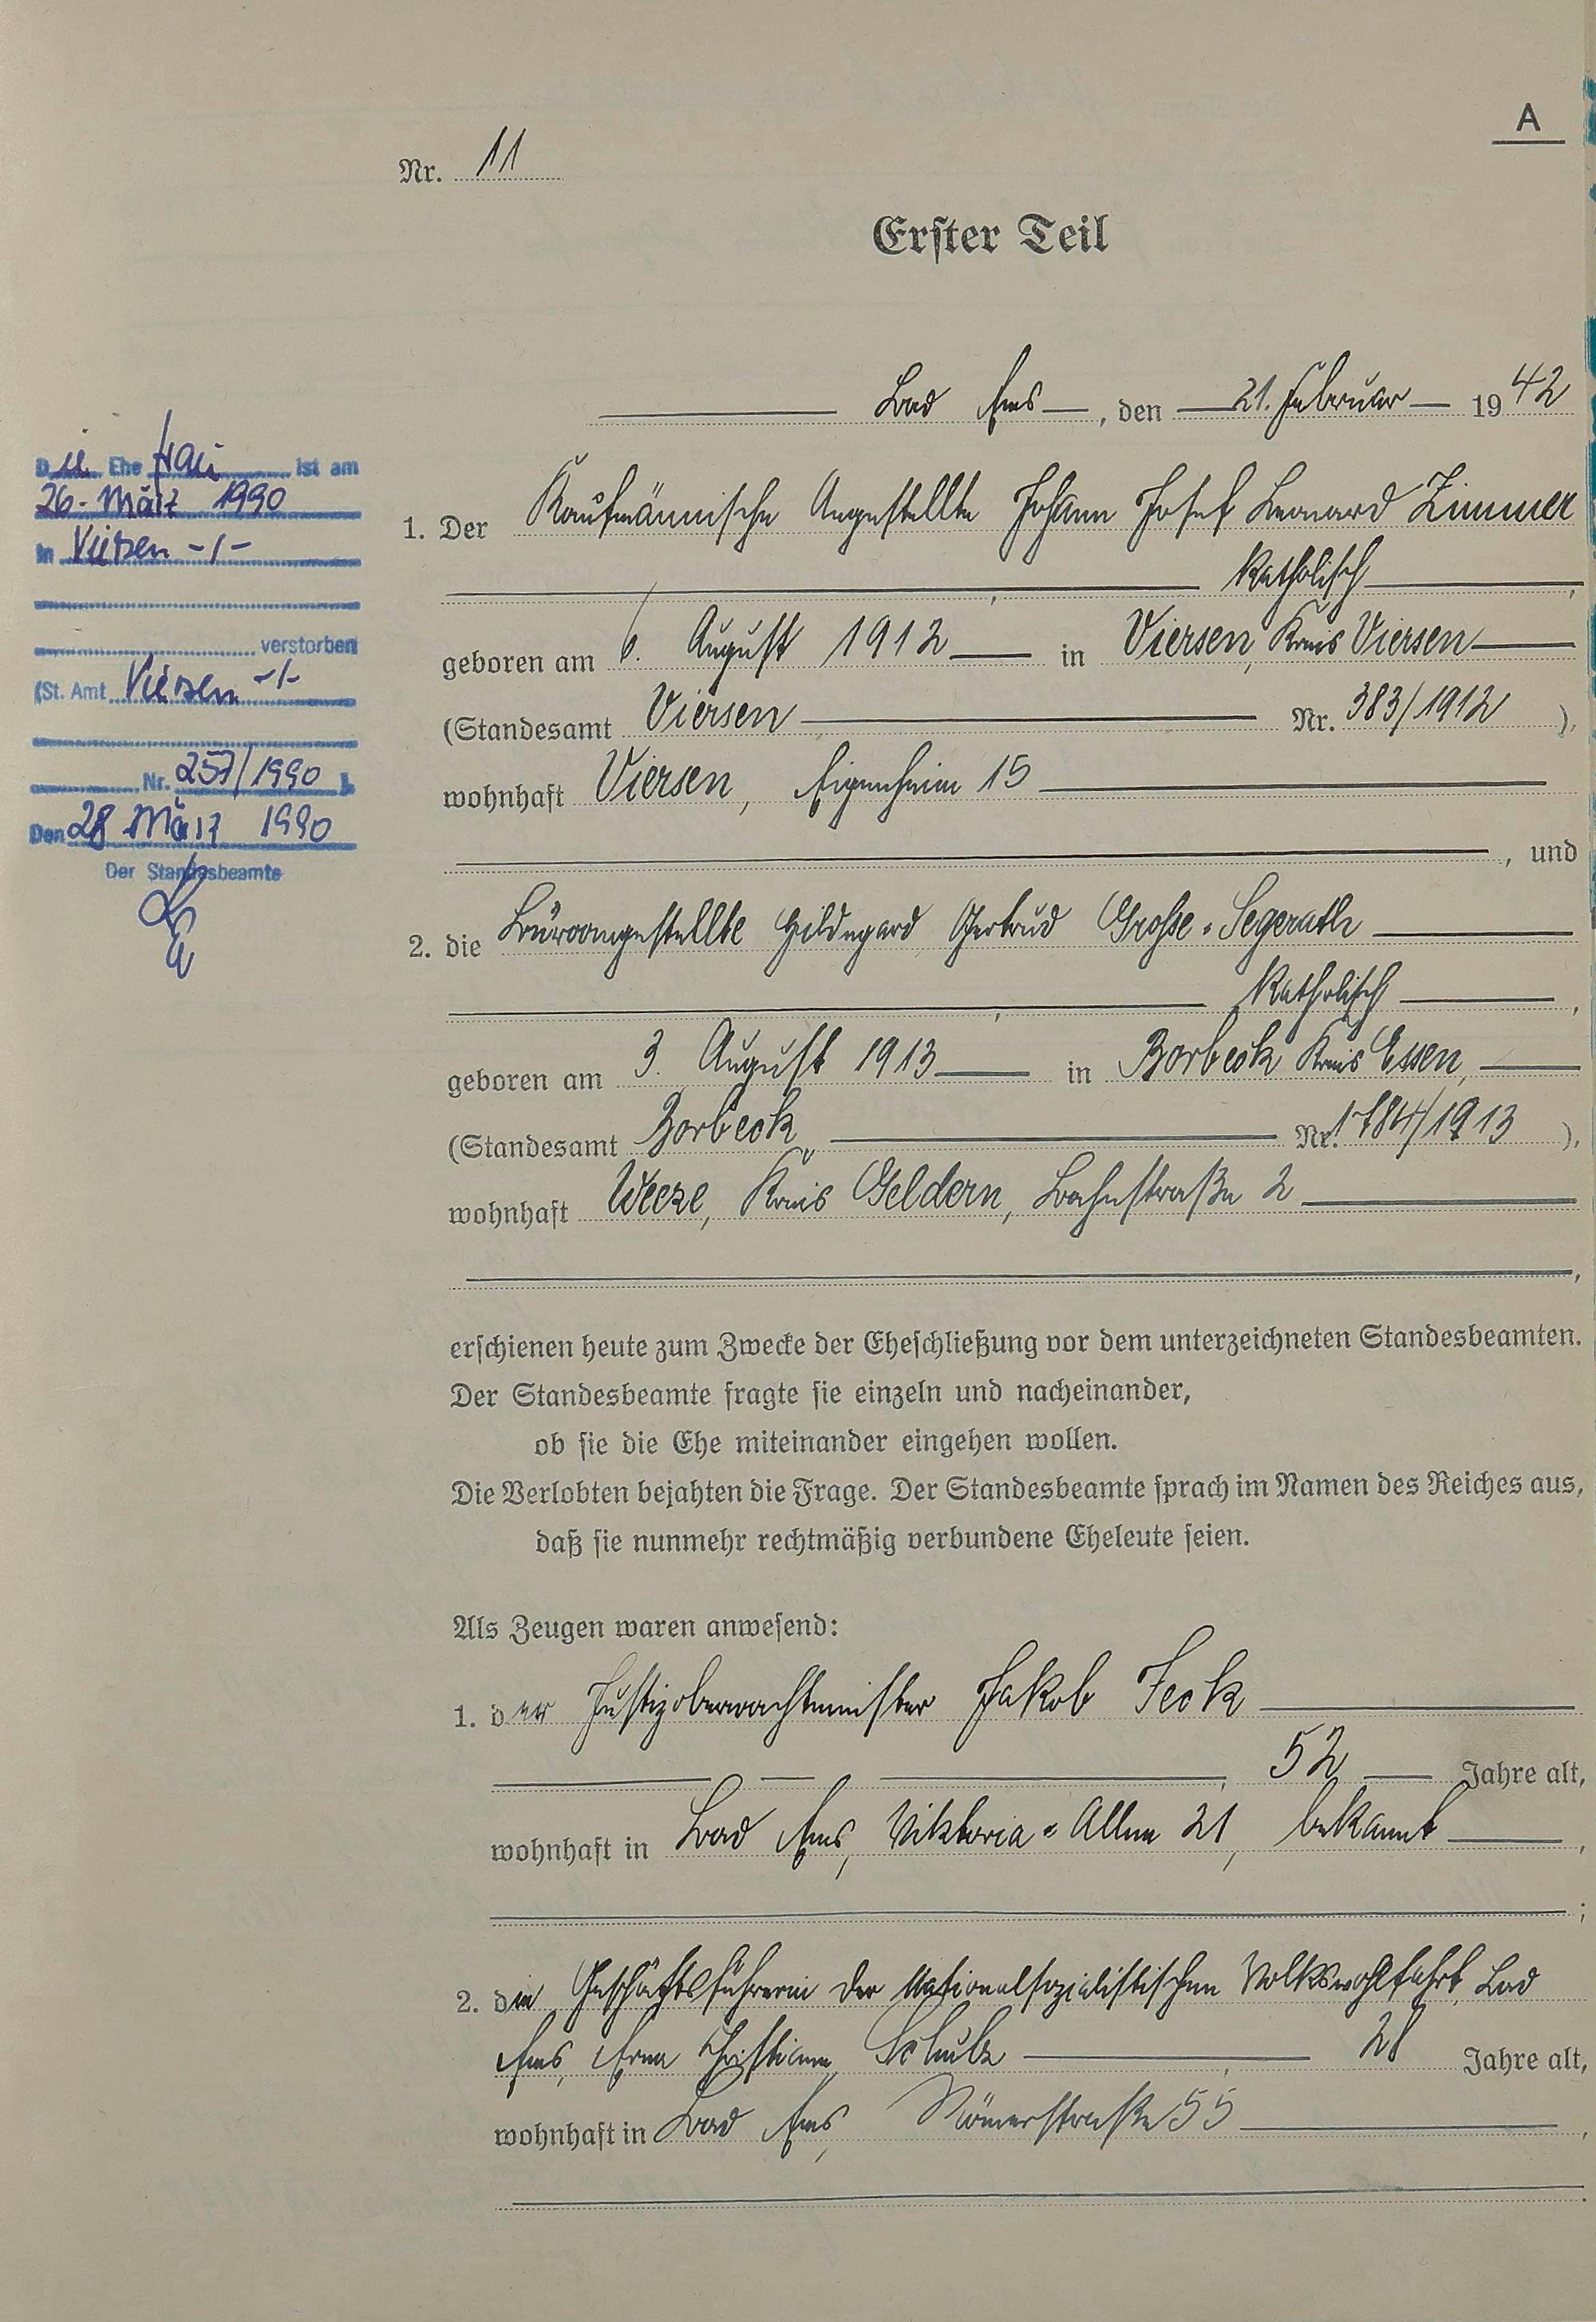 A
Nr. 11
Erster Teil
Bad Ems, den 21. Februar 1942
Die Ehefrau ist am
26. März 1990
in Viersen -/-
verstorben
(St. Amt Viersen -/-
Nr. 257/1990 ).
Den 28 März 1990
Der Standesbeamte
1. Der Kaufmännische Angestellte Johann Josef Leonard Zimmer
, katholisch,
geboren am 6. August 1912 in Viersen, Kreis Viersen
(Standesamt Viersen Nr. 383/1912 ),
wohnhaft Viersen, Eigenheim 15
, und
2. die Büroangestellte Hildegard Gertrud Große-Segerath
, katholisch,
geboren am 3. August 1913 in Borbeck Kreis Essen,
(Standesamt Borbeck Nr. 1784/1913 ),
wohnhaft Weeze, Kreis Geldern, Bahnstraße 2
,
erschienen heute zum Zwecke der Eheschließung vor dem unterzeichneten Standesbeamten.
Der Standesbeamte fragte sie einzeln und nacheinander,
ob sie die Ehe miteinander eingehen wollen.
Die Verlobten bejahten die Frage. Der Standesbeamte sprach im Namen des Reiches aus,
daß sie nunmehr rechtmäßig verbundene Eheleute seien.
Als Zeugen waren anwesend:
1. der Justizoberwachtmeister Jakob Feck
, 52 Jahre alt,
wohnhaft in Bad Ems, Viktoria-Allee 21, bekannt,
;
2. die Geschäftsführerin der Nationalsozialistischen Volkswohlfahrt, Bad
Ems, Erna Christiane Schulz, 28 Jahre alt,
wohnhaft in Bad Ems, Römerstraße 55,
.